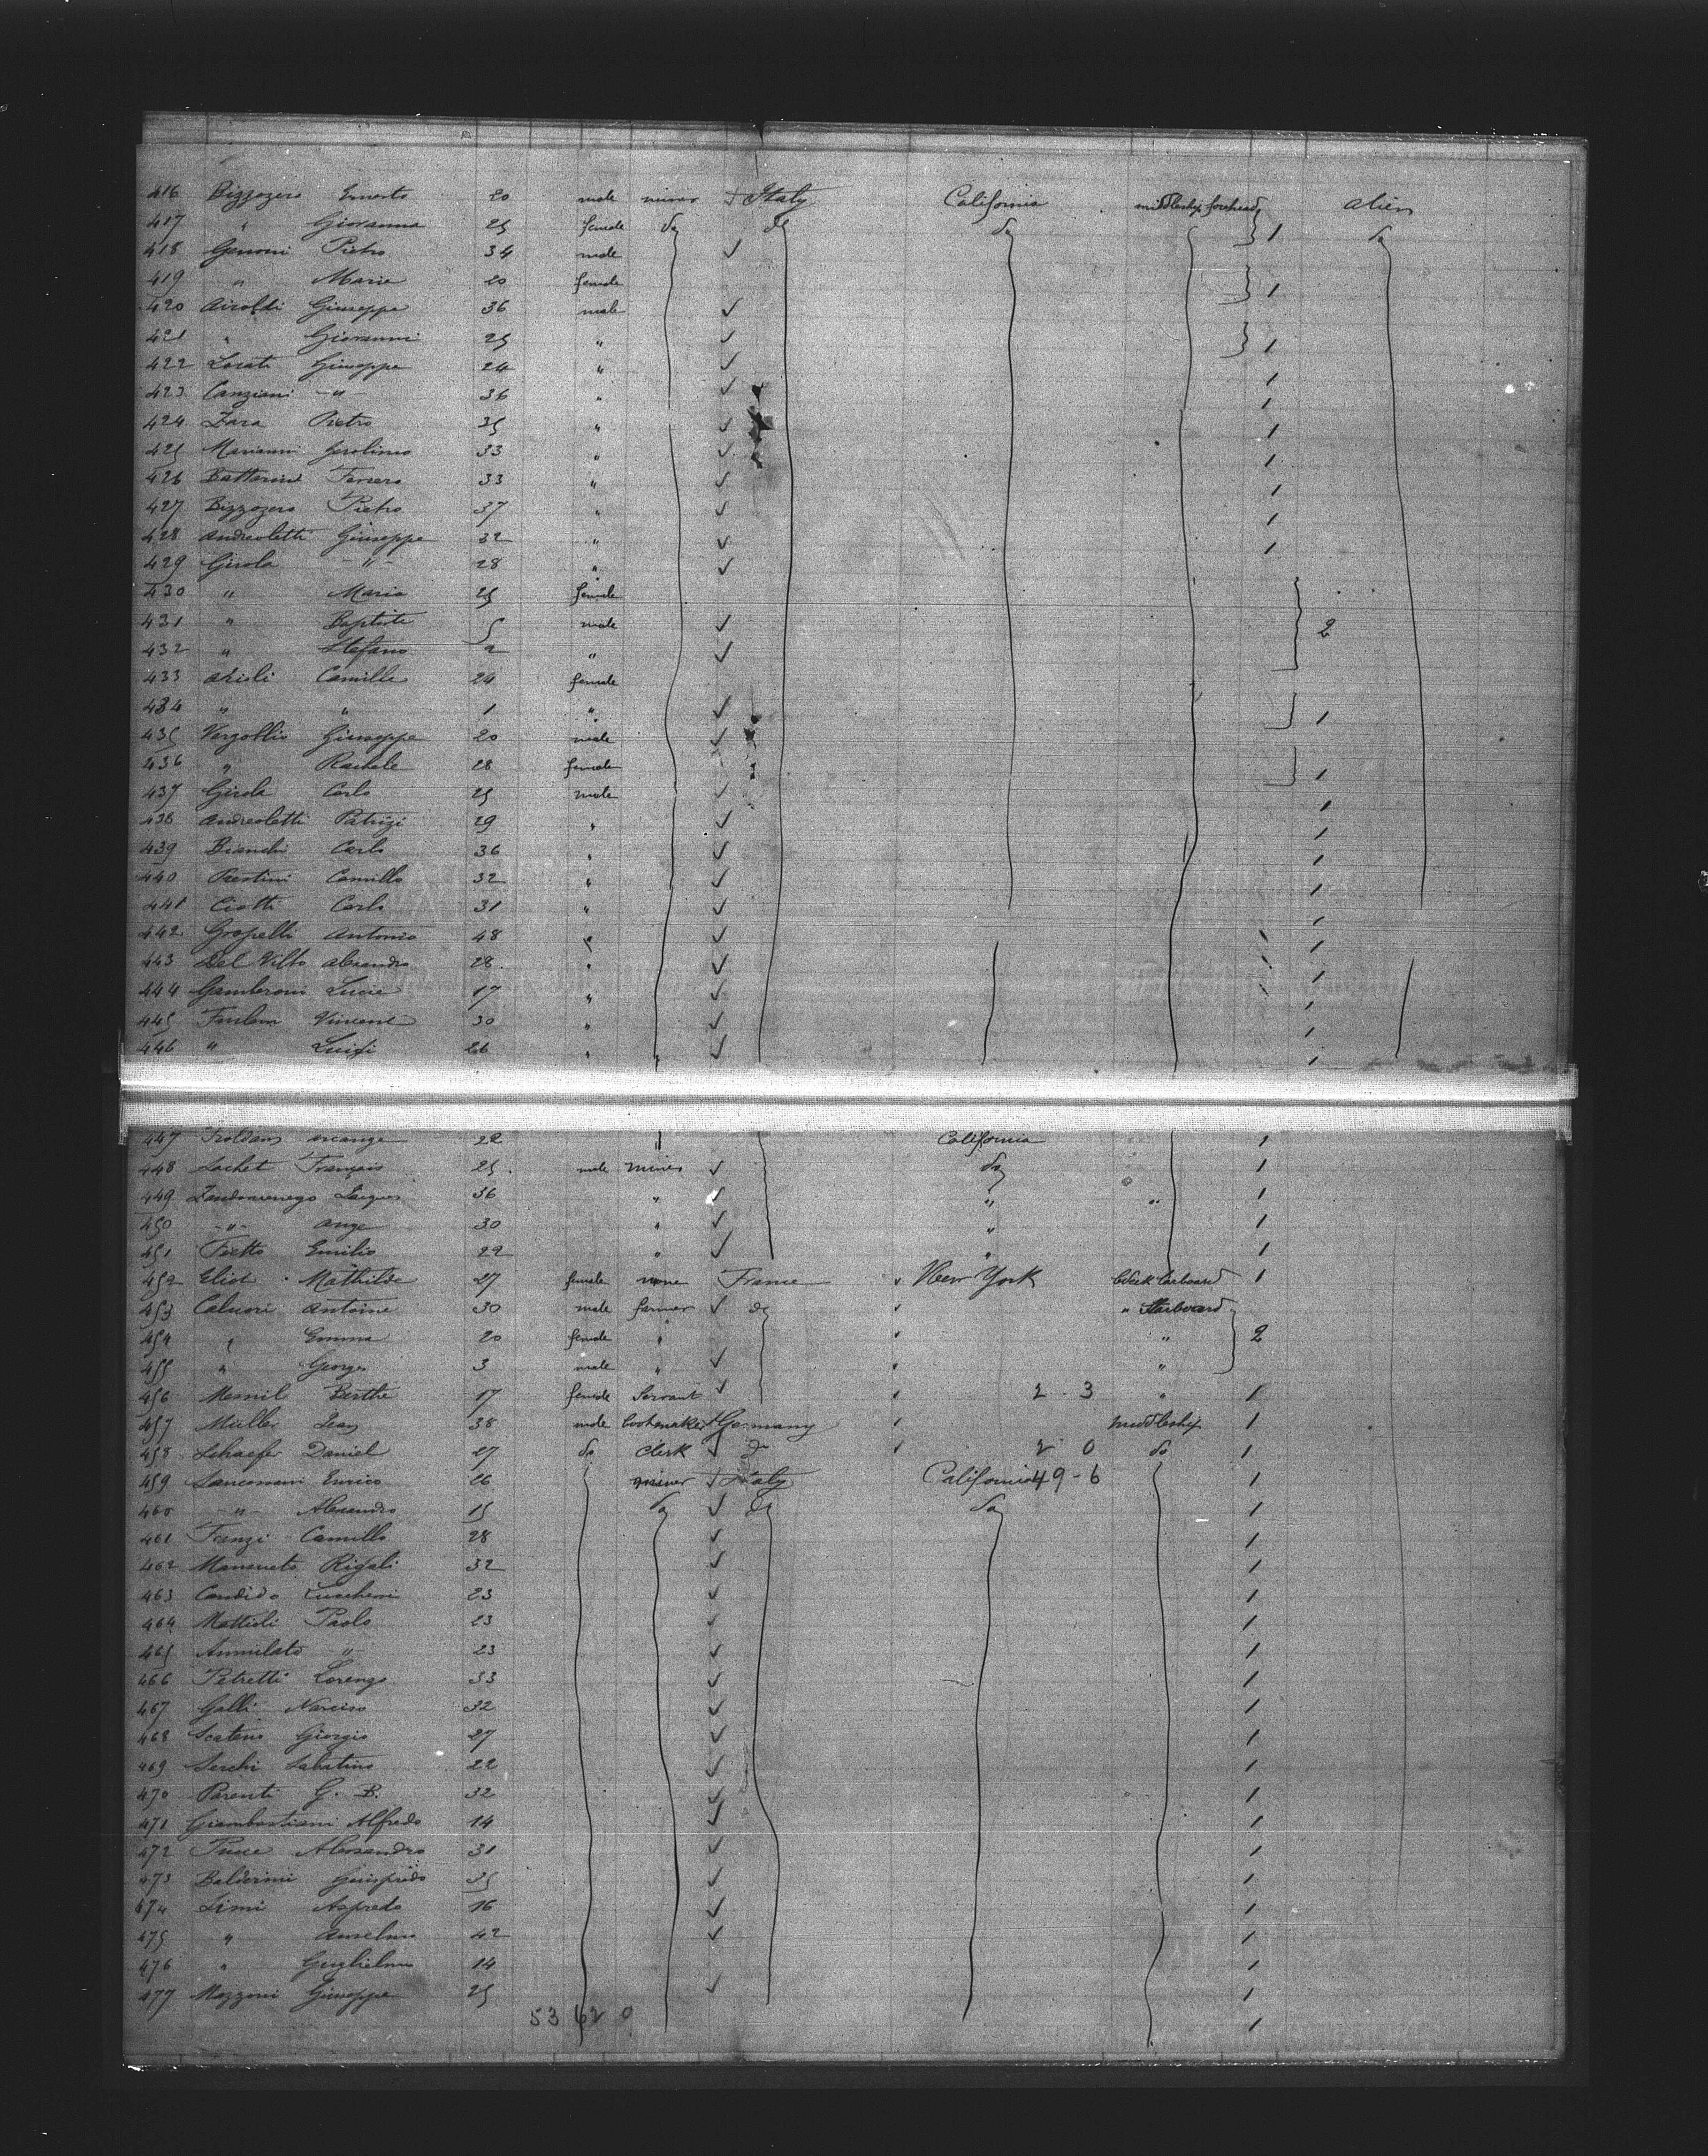 416 Bizzozero Ernesto 20 male miner Italy California middleship forehead alien
417 " Giovanna 25 female do do do } 1 do
418 Genoni Pietro 34 male
419 " Marie 20 female } 1
420 Airoldi Giuseppe 36 male
421 " Giovanni 25 " } 1
422 Losati Giuseppe 24 " 1
423 Canziani -"- 36 " 1
424 Zara Pietro 35 " 1
425 Marianni Gerolimo 33 " 1
426 Battarini 33 " 1
427 Bizzozero Pietro 37 " 1
428 Andreoletti Giuseppe 32 " 1
429 Girola -"- 28 "
430 " Maria 25 female
431 " Baptiste 5 male } 2
432 " Stefano 2 "
433 Camille 24 female
434 " " 1 " } 1
435 Giuseppe 20 male
436 " Rachele 28 female } 1
437 Girola Carlo 25 male 1
438 Andreoletti Patrizi 29 " 1
439 Bianchi Carlo 36 " 1
440 Prestini Camillo 32 " 1
441 Ciotti Carlo 31 " 1
442 Gropelli Antonio 48 " 1
443 Del Vitto 28 " 1
444 Gamberoni Lucie 17 " 1
445 Furlan Vincent 30 " 1
446 " Luigi 26 " 1
447 arcange 22 " California 1
448 Lochet François 25 male miner do 1
449 Zandomenego Jacques 36 " " " 1
450 -"- Ange 30 " " 1
451 Emilio 22 " " 1
452 Eliot Mathilde 27 female none France New York deck larboard 1
453 Caluori Antoine 30 male farmer do " Starboard
454 " Emma 20 female " " } 2
455 " Georges 3 male " "
456 Mesnil Berthe 17 female Servant 2 3 " 1
457 Müller Jean 38 male bookmaker Germany middleship 1
458 Schaefer Daniel 27 do clerk do 2 0 do 1
459 Enrico 26 miner Italy California 49-6 1
460 -"- Alesandro 15 do do do 1
461 Franzi Camillo 28 1
462 Mansueto Rigali 32 1
463 Candido Luscheni 23 1
464 Mattioli Paolo 23 1
465 Annulato " 23 1
466 Petretti Lorenzo 33 1
467 Galli Narciso 32 1
468 Scatena Giorgio 27 1
469 Serchi Sabatino 22 1
470 Parenti G. B. 32 1
471 Giambastiani Alfredo 14 1
472 Pucce Alessandro 31 1
473 Balderini 35 1
474 Simi Aspredo 16 1
475 " Anselmo 42 1
476 " Guglielmo 14 1
477 Mazzoni Giuseppe 25 1
53 62 0